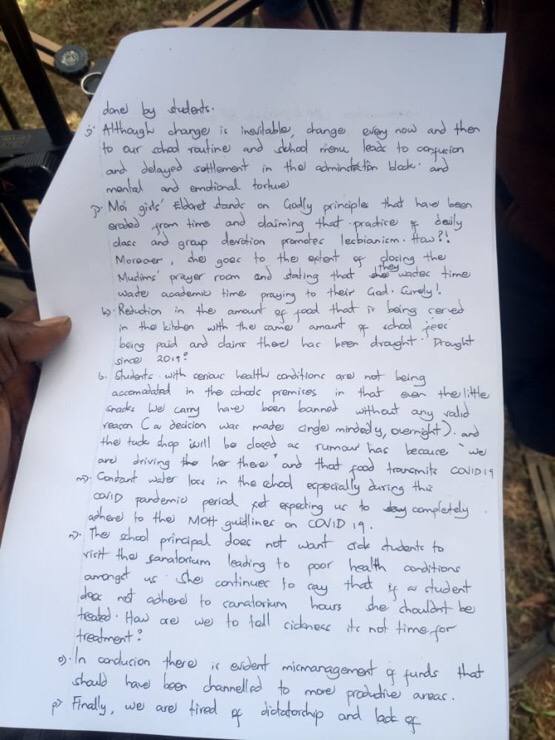 done by students.
i) Although change is inevitable, changes every now and then
to our school routine and school menu leads to confusion
and delayed settlement in the adminstration block and
mental and emotional torture
j) Moi girls' Eldoret stands on Godly principles that have been
eroded from time and claiming that practice of daily
class and group devotion promotes lesbianism. How?!
Moreover, she goes to the extent of closing the
Muslims' prayer room and stating that they wastes time
waste academic time praying to their God. Surely!
k) Reduction in the amount of food that is being served
in the kitchen with the same amount of school fees
being paid and claims there has been drought. Drought
since 2019?
l. Students with serious health conditions are not being
accomadated in the schools premises in that even the little
snacks we carry have been banned without any valid
reason (a decision was made single mindedly, overnight). and
the tuck shop will be closed as rumour has because "we
are driving the her there" and that food transmits COVID19
m) Constant water loss in the school especially during this
COVID pandemic period yet expecting us to completely
adhere to the MOH guidlines on COVID 19.
n). The school principal does not want sick students to
visit the sanatorium leading to poor health conditions
amongst us. She continues to say that if a student
does not adhere to sanatorium hours she shouldn't be
treated. How are we to tell sickness its not time for
treatment?
o). In conclusion there is evident mismanagement of funds that
should have been channelled to more productive areas.
p) Finally, we are tired of dictatorship and lack of